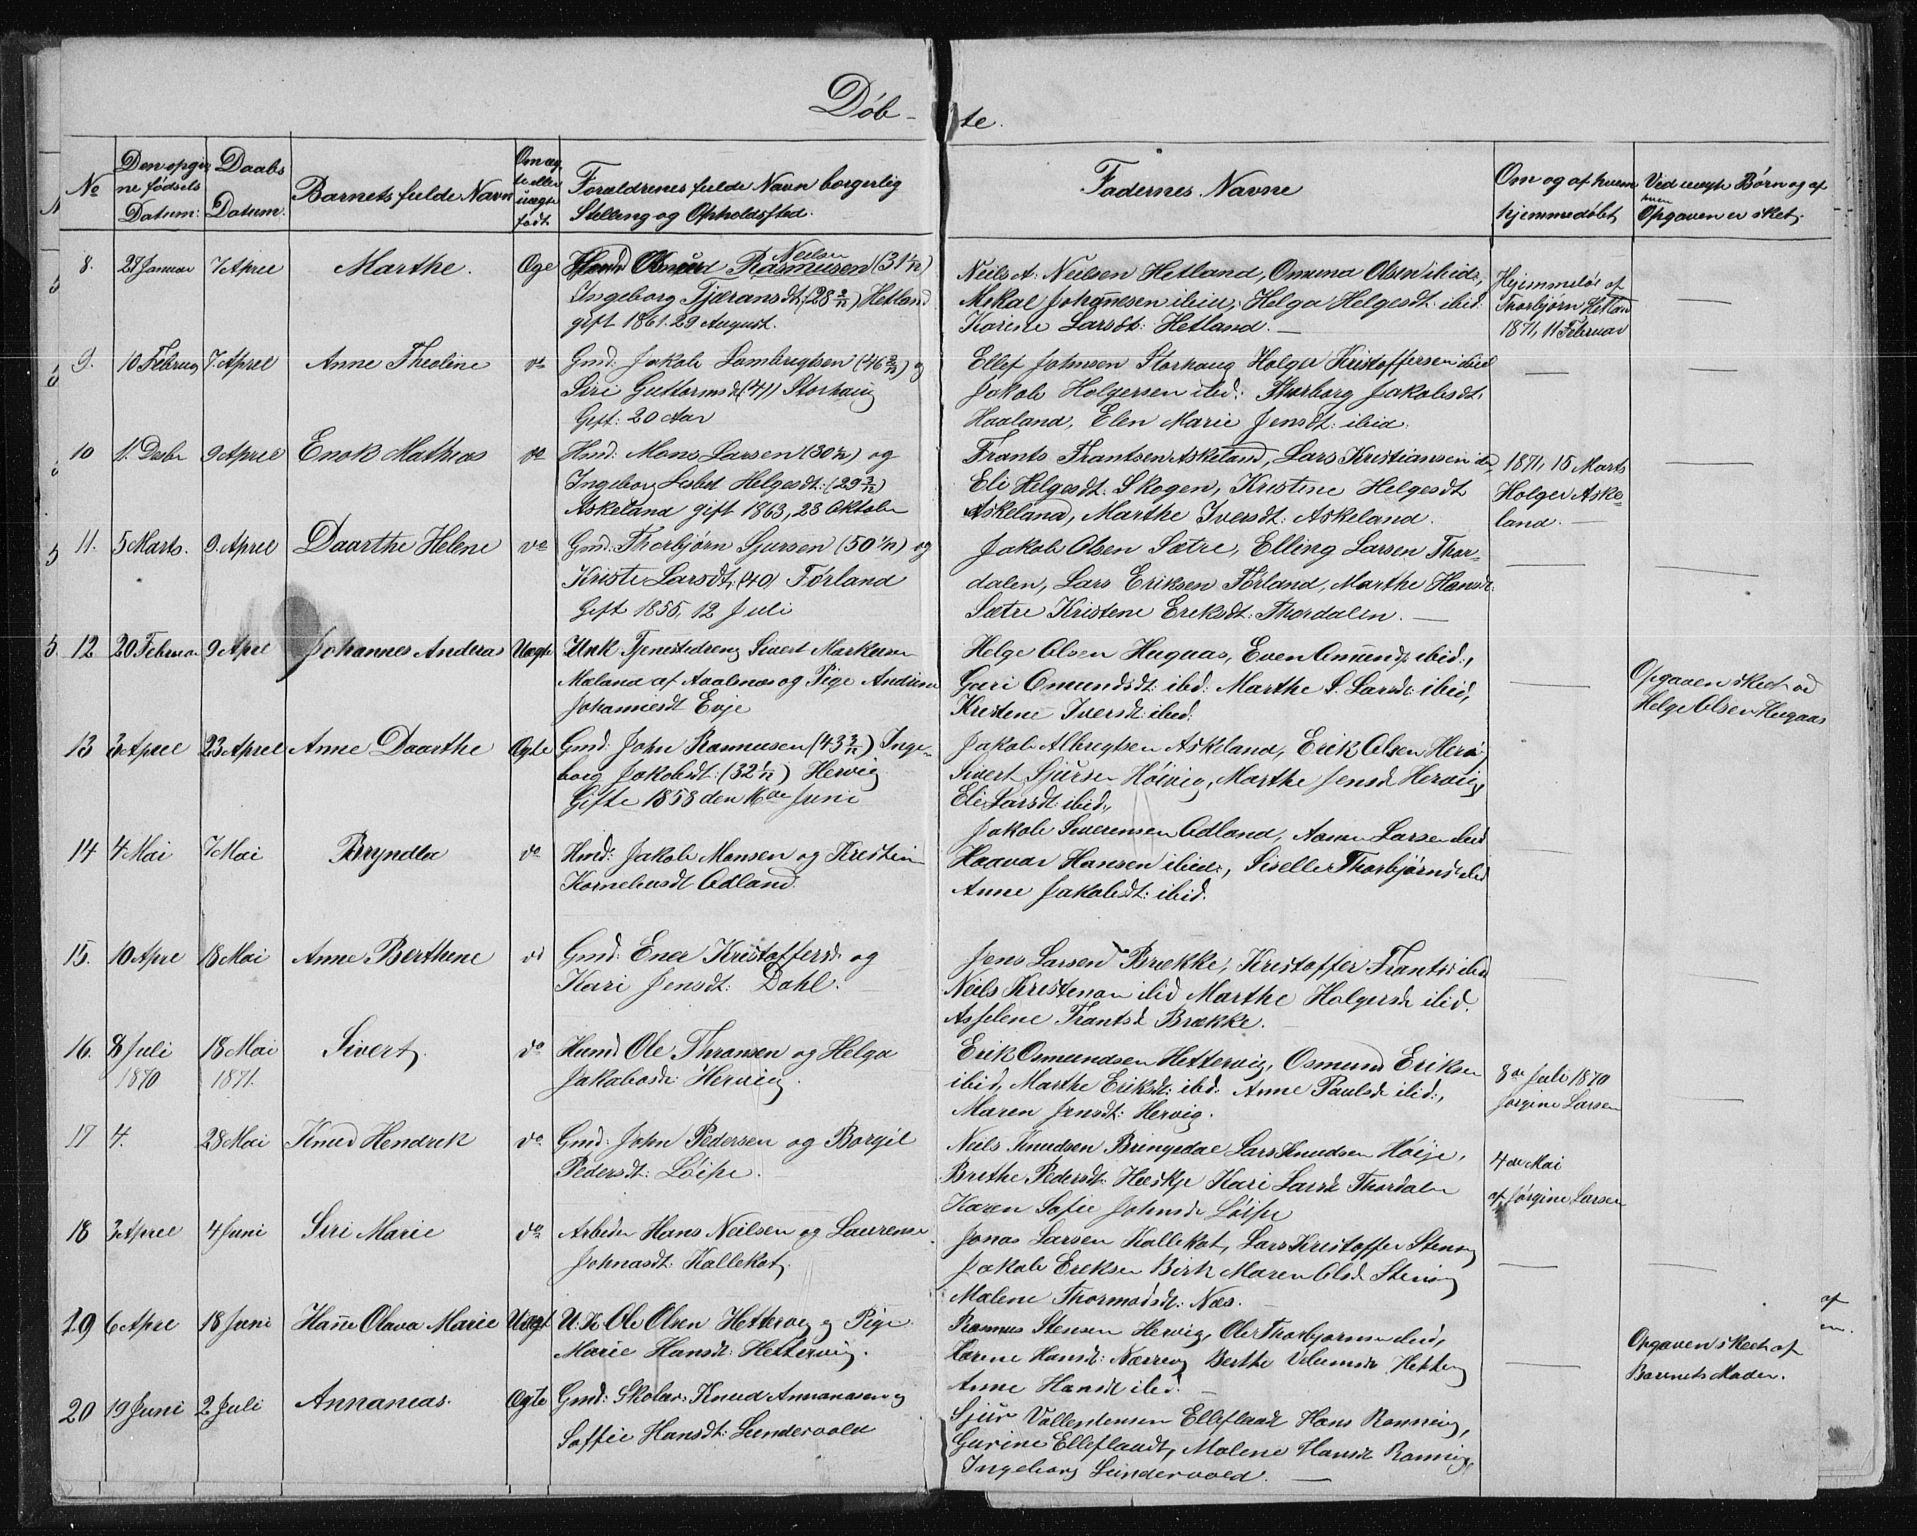 Døb-te.
No
Den opgivne fødsels Datum:
Daabs Datum.
Barnets fulde Navn
Om ægte eller uægte født.
Foraldrenes fulde Navn borgerlig Stelling og Opholdssted.
Fadernes Navne
Om og af hvem hjemmedøbt
Ved uægte Børn og af hvem Opgaven er sket.
8. 28 Januar 7 Aprel Marthe. Ægte
Rasmusen Neilsen (31 1/12)
Ingeborg Tjæransdt. (28 2/12) Hetland
gift 1861. 29 August.
Neils A. Neilsen Hetland, Omund Olsen ibid;
Mikal Johannesen ibid; Helga Helgesdt: ibid:
Karine Larsdt: Hetland. —
Hjemmedøb af
Thorbjørn Hetland
1871, 11 Februar
9. 10 Februa 7 Aprel Anne Theoline do
Gmd: Jakob Lambregtsen (46 2/12) og
Siri Guttormsd. (41) Storhaug
Gift: 20 Aar
Ellef Johnsen Storhaug Holger Kristoffersen ibid
Jakob Holgersen ibid: Thorborg Jakobsdt.
Haaland, Elen Marie Jensdt: ibid:
10 11. Desbr 9 Aprel Enok Mathias do
Hmd: Mons Larsen (30 1/12) og
Ingeborg Lisbet Helgesdt: (29 2/12)
Askeland gift 1863, 23 Oktober
Frants Frantsen Askeland, Lars Kristiansen ibd,
Eli Helgesdt: Skogen, Kristine Helgesdt
Askeland, Marthe Iversdt: Askeland.
1871, 15 Marts
Holger Aske-
land. —
11. 5 Marts. 9 Aprel Daarthe Helene do
Gmd: Thorbjørn Sjursen (50 1/12) og
Kriste Larsdt. (40) Førland
Gift 1855, 12 Juli
Jakob Olsen Sætre, Elling Larsen Thor-
dalen, Lars Eriksen Førland, Marthe Hansdt.
Sætre Kristene Eriksdt: Thordalen. —
12 20 Februa 9 Aprel Johannes Anderas Uægte
Unk Tjenestedreng Sivert Markusen
Mæland af Avalsnes og Pige Andrina
Johannesdt Evje
Helge Olsen Hugaas, Even Omunds ibid:,
Guri Omundsdt: ibid: Marthe S. Larsdt: ibid,
Kristene Iversdt: ibid:
Opgaven skeet ved
Helge Olsen Hugaas
13 3 Aprel 23 Aprel Anne Daarthe Ægte
Gmd: John Rasmusen (43 3/12) Inge-
borg Jakobsdt: (32 1/12) Hervig
Gifte 1858 den 16de Juni
Jakob Albregtsen Askeland, Erik Olsen Hervig
Sivert Sjursen Høivig, Marthe Jensd Hervig,
Eli Larsdt ibid,
14 4 Mai 7 Mai Bryndla do
Hmd: Jakob Monsen og Kristin
Korneliusdt Ødland.
Jakob Severensen Ødland, Aamun Larsen ibid
Haavar Hansen ibid:, Siselle Thorbjørnsd ibid
Anne Jakobsdt: ibid:
15. 10 Apre 18 Mai Anne Berthine do
Gmd: Ener Kristoffersen og
Kari Jensdt: Dahl.
Jens Larsen Brække, Kristoffer Frants ibid
Neils Kristenan ibid Marthe Holgersd ibid.
Asselene Frantsd Brække.
16. 8 Juli 18 Mai Sivert do
1870 1871.
Husmd Ole Thransen og Helga
Jakobsdt Hervig.
Erik Osmundsen Hettervig, Osmund Eriksen
ibid, Marthe Eriksdt: ibid: Anne Paulsd ibid:,
Maren Jensdt: Hervig.
8de Juli 1870
Jørgine Larsen
17 4. 28 Mai Knud Hendrik do
Gmd: John Pedersen og Borgil
Pedersdt: Løipe.
Neils Knudsen Bringedal Lars Knudsen Høije,
Brethe Pedersdt: Heskje Kari Larsd Thordalen
Karen Sofie Johnsd Løipe
4de Mai
af Jørgine Larsen
18 3 Aprel 4 Juni Siri Marie do
Arbeder Hans Neilsen og Laurense
Johnasdt: Kallekot,
Jonas Larsen Kallekot, Lars Kristoffer Stensvig
Jakob Eriksen Birk Maren Olsd Stensvig
Malene Thormodsdt: Næs.
19 6 Apre 18 Juni Hanne Olava Marie Uægt
U. K. Ole Olsen Hettervig og Pige
Marie Hansdt: Hettervig.
Rasmus Stensen Hervig, Ole Thorbjørnsen ibid,
Karene Hansdt: Nærevg Berthe Velumsd Hettevg
Anne Hansdt ibid.
Opgaven skeet af
Barnets Moder.
20 19 Juni 2 Juli Annanias. Ægte
Gmd: Skolar: Knud Annanasen og
Soffie Hansdt: Lundevold
Sjur Vallentensen Elleflaadt Hans Ronnevig,
Gurine Elleflaadt, Malene Hansdt Ronnevig
Ingeborg Lundevold. —